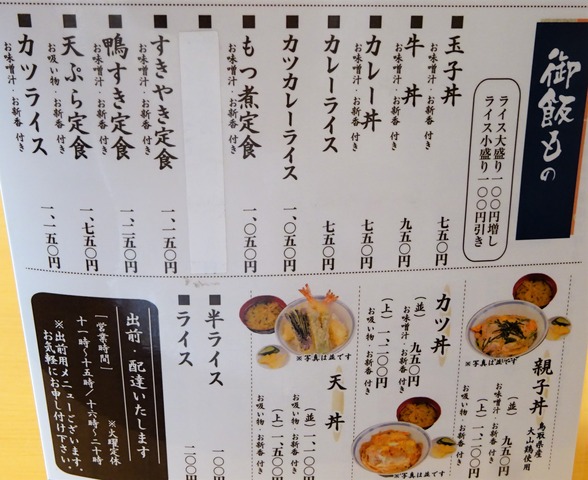 御飯もの
ライス大盛り 一〇〇円増し
ライス小盛り 一〇〇円引き
■玉子丼
お味噌汁・お新香 付き
七五〇円
■牛丼
お味噌汁・お新香 付き
九五〇円
■カレー丼
お味噌汁・お新香 付き
七五〇円
■カレーライス
七五〇円
■カツカレーライス
一、〇五〇円
■もつ煮定食
お味噌汁・お新香 付き
一、〇五〇円
■すきやき定食
お味噌汁・お新香 付き
一、一五〇円
■鴨すき定食
お味噌汁・お新香 付き
一、二五〇円
■天ぷら定食
お吸い物・お新香 付き
一、七五〇円
■カツライス
お味噌汁・お新香 付き
一、一五〇円
親子丼
鳥取県産
大山鶏使用
(並) 九五〇円
お味噌汁 お新香 付き
(上) 一、二〇〇円
お吸い物 お新香 付き
※写真は並です
カツ丼
(並) 九五〇円
お味噌汁 お新香 付き
(上) 一、二〇〇円
お吸い物 お新香 付き
※写真は並です
天丼
(並) 一、一〇〇円
お吸い物 お新香 付き
(上) 一、五〇〇円
お吸い物 お新香 付き
※写真は並です
■半ライス
一〇〇円
■ライス
二〇〇円
出前・配達いたします
※火曜定休
[営業時間]
十一時〜十五時/十六時〜二十時
※出前用メニューございます。
お気軽にお申し付け下さい。